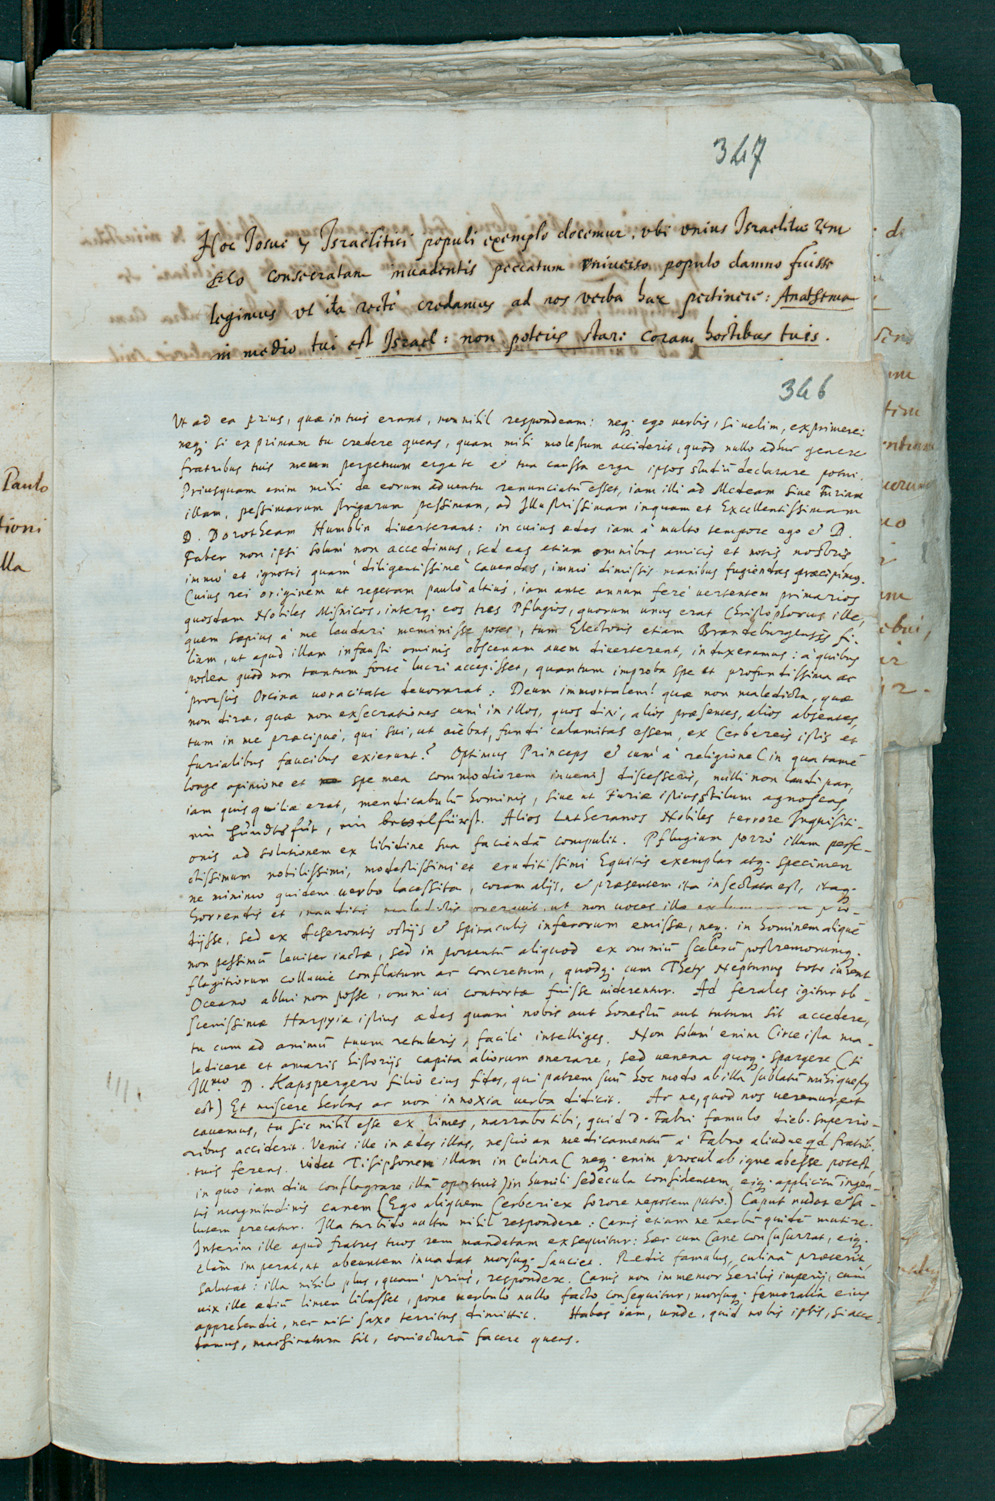 347
Hoc Josue & Israelitici populi exemplo docemur. vbi vnius Israelitae rem
consecratam inuadentis peccatum vniuerso populo damno fuisse
legimus vt ita rectè credamus ad nos verba haec pertinere: Anathema
in medio tui est Israel: non poteris stare coram hostibus tuis.
346
Vt ad ea prius, quae in tuis erant, nonnihil respondeam: neq; ego uerbis, si uelim, exprimere:
neq; si exprimam tu credere queas, quam mihi molestum acciderit, quod nullo adhuc genere
fratribus tuis meum perpetuum erga te & tua caussa erga ipsos studiū declarare potui.
Priusquam enim mihi de eorum aduentu renunciatū esset, iam illi ad Medeam siue Furiam
illam, pessimarum strigarum pessimam, ad Illustrissimam inquam et Excellentissimam
D. Dorotheam Humblin diuerterant: in cuius aedes iam à multo tempore ego & D.
Faber non ipsi solum non accedimus, sed eas etiam omnibus amicis et notis nostris
immo et ignotis quam diligentissimè cauendas, immo dimissis manibus fugiendas praecipimus.
Cuius rei originem ut repetam paulò altius, iam ante annum ferè uertentem primarios
quosdam Nobiles Misnicos, interq; eos tres Pflugios, quorum unus erat Christophorus ille,
quem saepius à me laudari meminisse potes, tum Electoris etiam Brandeburgensis fi-
lium, ut apud illam infausti ominis obscenam auem diuerterent, induxeramus: à quibus
postea quòd non tantum fortè lucri accepisset, quantum improba spe et profundissima ac
prorsus Orcina uoracitate deuorarat: Deum immortalem! quae non maledicta, quae
non dirae, quae non exsecrationes cum in illos, quos dixi, alios praesentes, alios absentes,
tum in me praecipuè, qui sui, ut aiebat, fundi calamitas essem, ex Cerbereis istis et
furialibus faucibus exierunt? Optimus Princeps & cum à religione (in qua tamē
longe opinione et spe mea commodiorem inueni) discesseris, nulli non laudi par,
iam quisquiliae erat, mendicabulū hominis, siue ut Furiae istius stilum agnoscas
ein hundtsfut, ein Alios Lutheranos Nobiles terrore Inquisiti-
onis ad solutionem ex libidine sua faciendā compulit. Pflugium porrò illum perfe-
ctissimum nobilissimi, modestissimi et eruditissimi Equitis exemplar atq; specimen
ne minimo quidem uerbo lacessita, coram alijs, & praesentem ita insectata est, itaq;
horrendis et inauditis maledictis onerauit, ut non uoces illae ex
ijsse, sed ex Acherontis ostijs & spiraculis inferorum emissae, neq; in hominem aliquē
non pessimū leuiter iactae, sed in portentū aliquod ex omniū scelerū postremorumq;
flagitiorum colluuie conflatum ac concretum, quodq; cum Thety Neptunus toto iuuent
Oceano ablui non posse, omni ui contortae fuisse uiderentur. Ad ferales igitur ob-
scenissimae Harpyiae istius aedes quam nobis aut honestū aut tutum sit accedere,
tu cum ad animū tuum retuleris, facilè intelliges. Non solùm enim Circe ista ma-
ledicere et amaris historijs capita aliorum onerare, sed uenena quoq; spargere (si
Illmo D. Kapspergero filio eius fides, qui patrem suū hoc modo ab illa sublatū mihi questus
est) Et miscere herbas ac non innoxia uerba didicit. Ac ne, quod nos ueremur et
cauemus, tu sic nihil esse ex times, narrabo tibi, quid D. Fabri famulo dieb. superio-
ribus acciderit. Venit ille in aedes illas, nescio an medicamentū à Fabro aliudue qd fratrib.
tuis ferens. Videt Tisiphonem illam in culina (neq; enim procul ab igne abesse potest
in quo iam diu conflagrare illā oportuit) in humili sedecula considentem, eiq; applicitū ingen-
tis magnitudinis canem (Ego aliquem Cerberi ex sorore nepotem puto) Caput nudat & sa-
lutem precatur. Illa turbido uultu nihil respondere: Canis etiam ne uerbū quidē mutire.
Interim ille apud fratres tuos rem mandatam exsequitur: haec cum Cane consusurrat, eiq;
clàm imperat, ut abeuntem inuadat morsuq; sauciet. Redit famulus, culinā praeterit
salutat: illa nihilo plus, quam prius, respondere. Canis non immemor herilis imperij, cum
uix ille aediū limen libasset, ponè uerbulo nullo facto consequitur, morsuq; femoralia eius
apprehendit, nec nisi saxo territus dimittit. Habes iam, unde, quid nobis ipsis, si acce-
damus, machinatum sit, coniecturā facere queas.
Paulo
tioni
lla